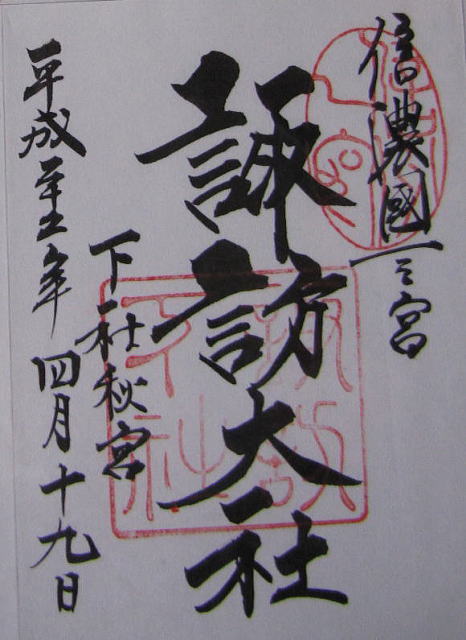 信濃國一之宮
諏訪大社
下社秋宮
平成二十五年四月十九日